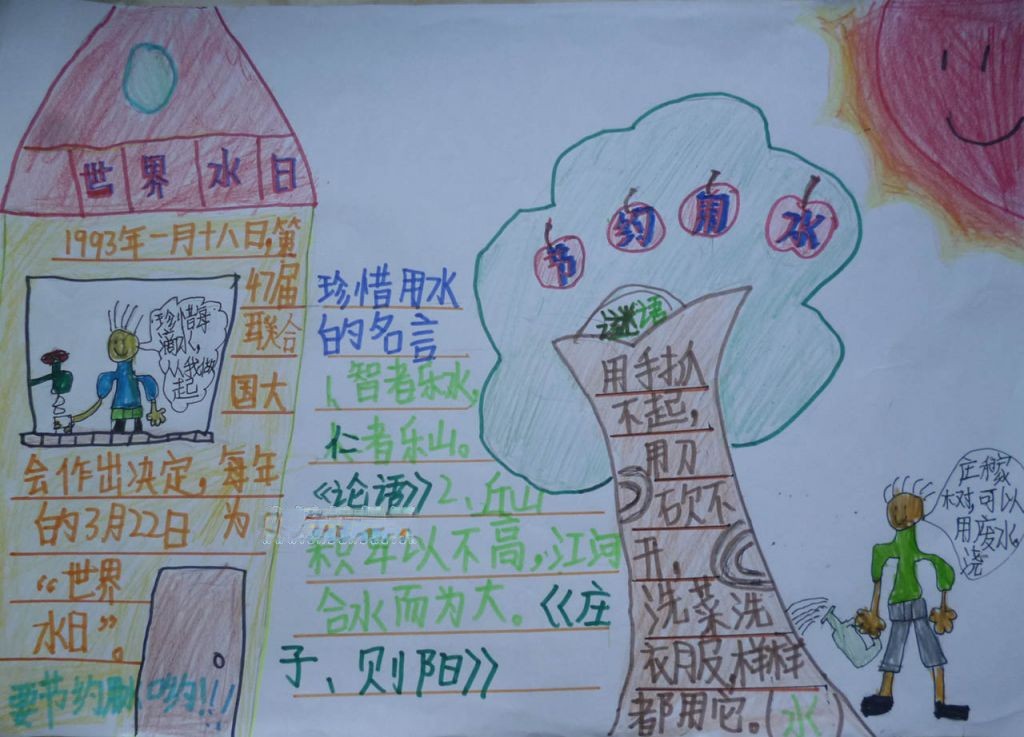 世界水日
1993年一月十八日,第
47届
联合
国大
会作出决定,每年
的3月22日为
“世界
水日”。
要节约用水哟!!!
珍惜每
滴水,
从我做
起
珍惜用水
的名言
1、智者乐水,
仁者乐山。
《论语》2、丘山
积卑以不高,江河
合水而为大。《庄
子、则阳》
节约用水
谜语
用手抓
不起,
用刀
砍不
开,
洗菜洗
衣服,样样
都用它。(水)
庄稼
树,可以
用废水。
浇